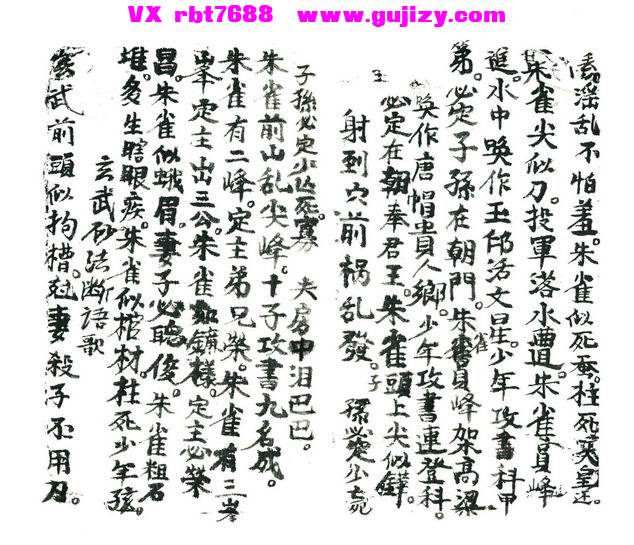 VX rbt7688 www.gujizy.com
淫乱不怕羞。朱雀似死蚕。枉死
朱雀尖似刀。投軍落水遭。朱雀員峰
進水中。喚作玉印活文星。少年攻書科甲
第。必定子孫在朝門。朱雀員峰架高梁
喚作唐帽貴人鄉。少年攻書連登科。
必定在朝奉君王。朱雀頭上尖似鎽。
射到穴前禍乱發。子孫必定少亡
子孫必定少亡死。 夫房中泪巴巴。
朱雀前山乱尖峰。十子攻書九名成。
朱雀有二峰。定主弟兄荣。朱雀有三峯
峯定主出三公。朱雀如鏡樣。定主必榮
昌。朱雀似蛾眉。妻子必聪俊。朱雀粗石
堆。多生瞎眼疾。朱雀似棺材。枉死少年孩。
玄武砂法断語歌
玄武前頭似拘槽。尅妻殺子不用刀。